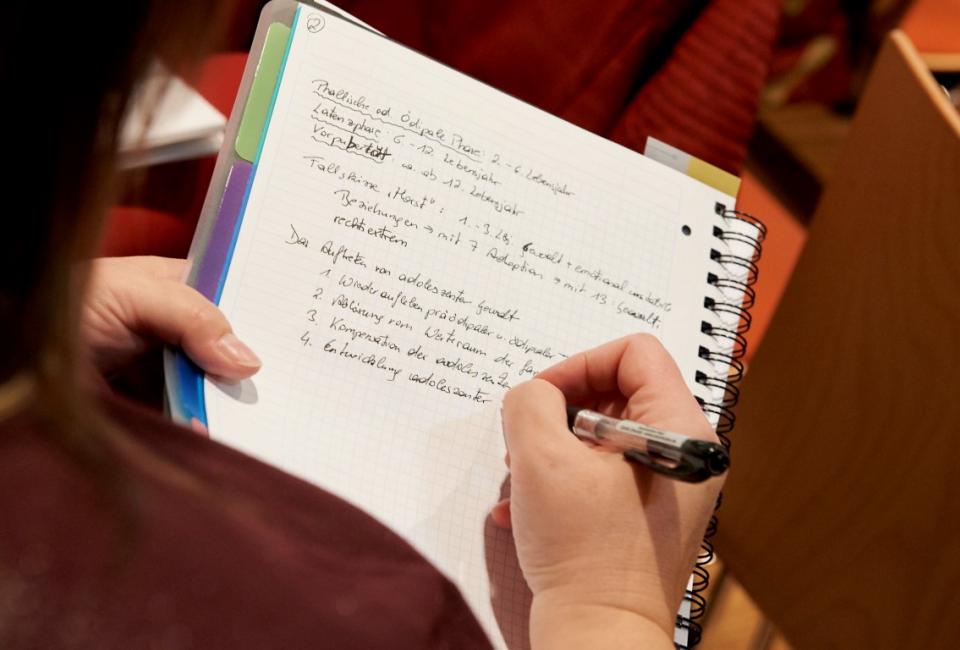 2
Phallische od Ödipale Phase: 2.-6. Lebensjahr
Latenzphase: 6.-12. Lebensjahr
Vorpubertät, ca. ab 12. Lebensjahr
Fallskizze "Horst": 1.-3. Lbj. Gewalt + emotional
Beziehungen → mit 7 Adoption → mit 13: Gewalt,
rechtsextrem
Das Auftreten von adoleszenter Gewalt
1. Wiederaufleben präödipaler u. ödipaler
2. Ablösung vom Weitraum der
3. Kompensation der adoleszenten
4. Entwicklung adoleszenter